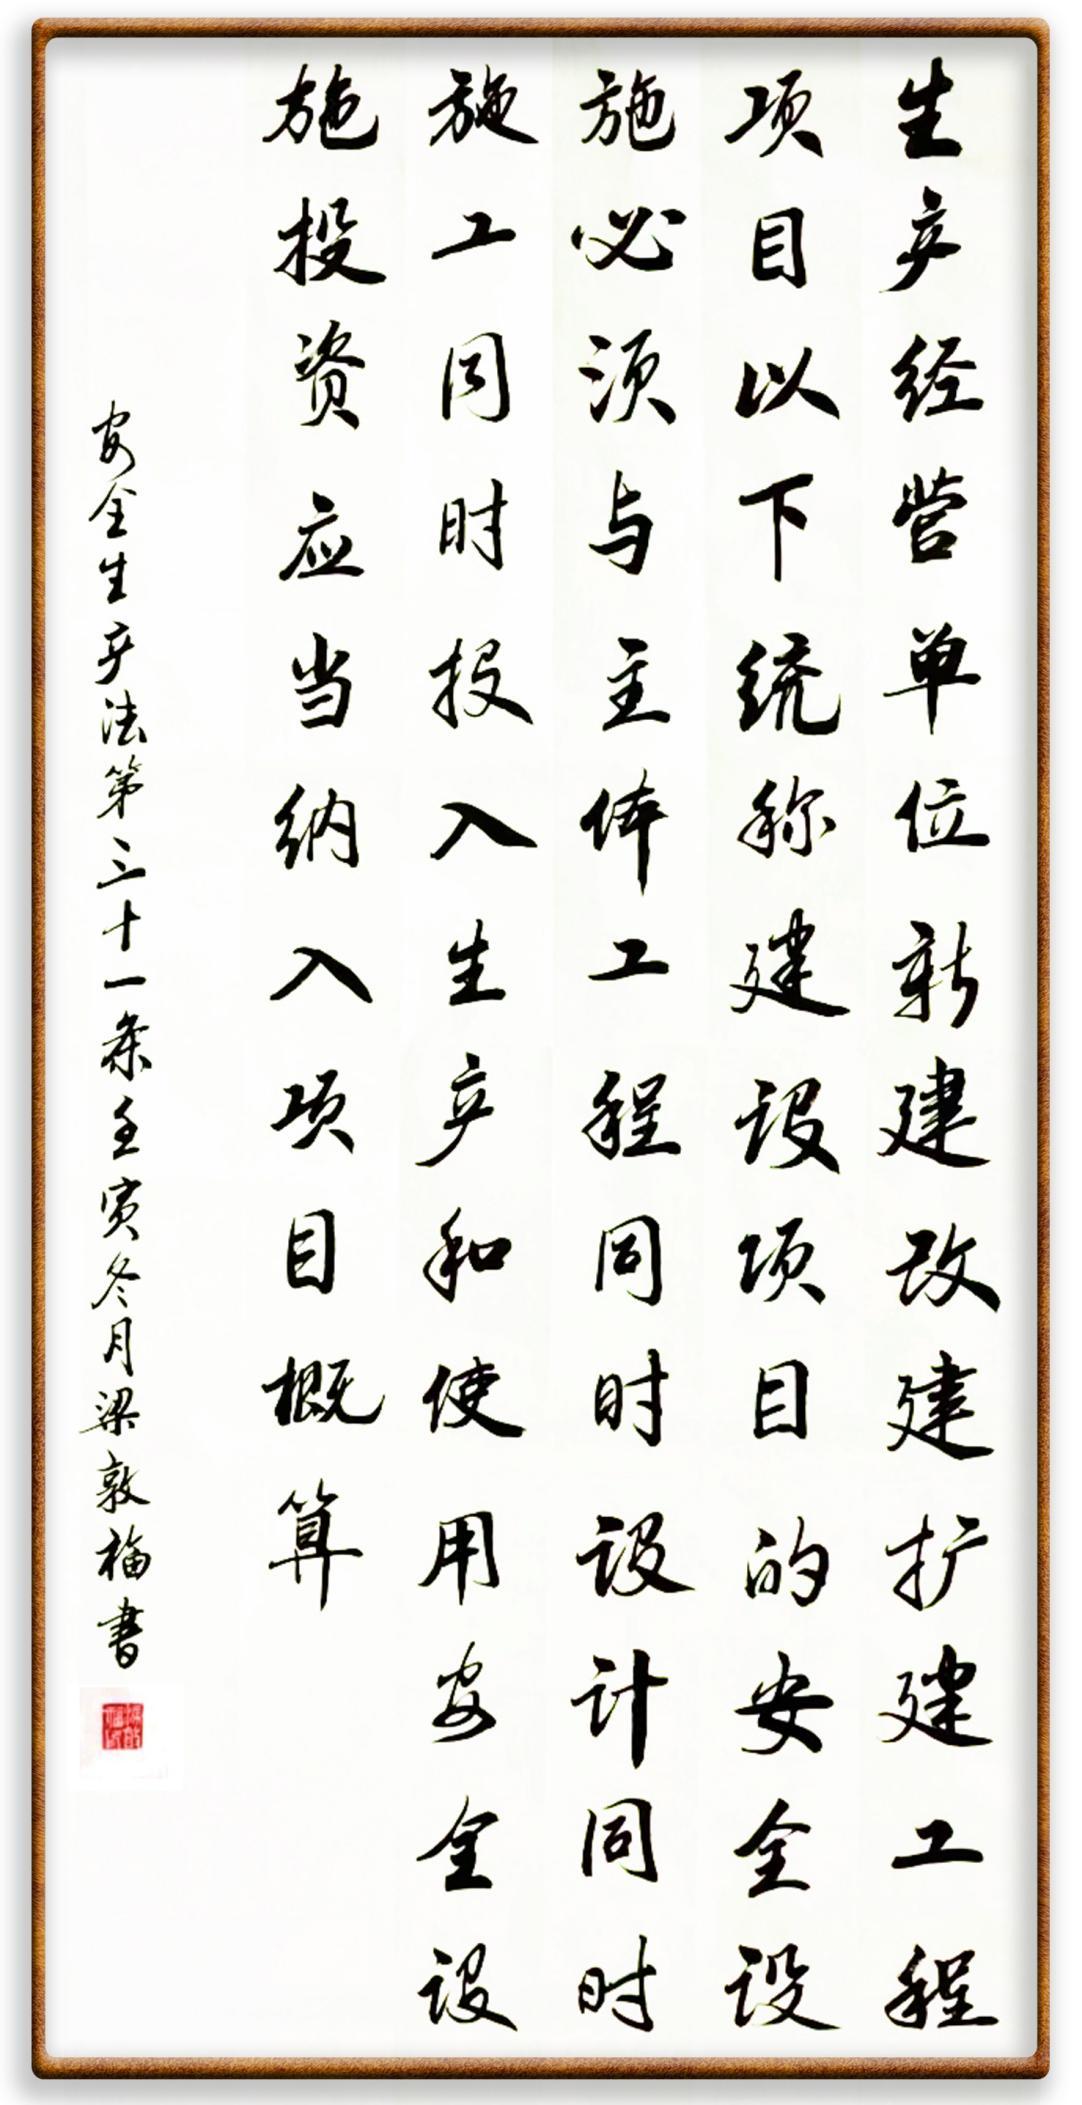 生产经营单位新建改建扩建工程
项目以下统称建设项目的安全设
施必须与主体工程同时设计同时
施工同时投入生产和使用安全设
施投资应当纳入项目概算
安全生产法第三十一条壬寅冬月梁敦福书